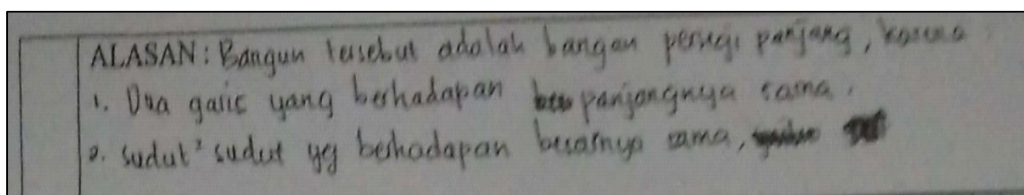 ALASAN: Bangun tersebut adalah bangun persegi panjang, karena
1. Dua garis yang berhadapan panjangnya sama.
2. sudut² sudut yg berhadapan besarnya sama,